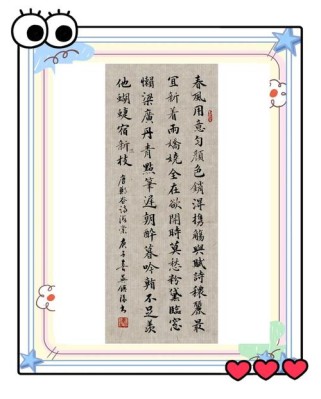 春風用意匀顏色銷淂携觴與賦詩穠麗最
宜新着雨嬌嬈全在欲開時莫愁粉黛臨窓
懶梁廣丹青點筆遲朝醉暮吟不足羨
他蝴蝶宿枝 唐鄭谷詩海棠 庚子春書